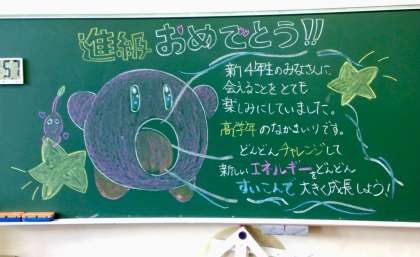 進級おめでとう!!
新4年生のみなさんに
会えることをとても
楽しみにしていました。
高学年のなかまいりです。
どんどんチャレンジして
新しいエネルギーをどんどん
すいこんで大きく成長しよう!